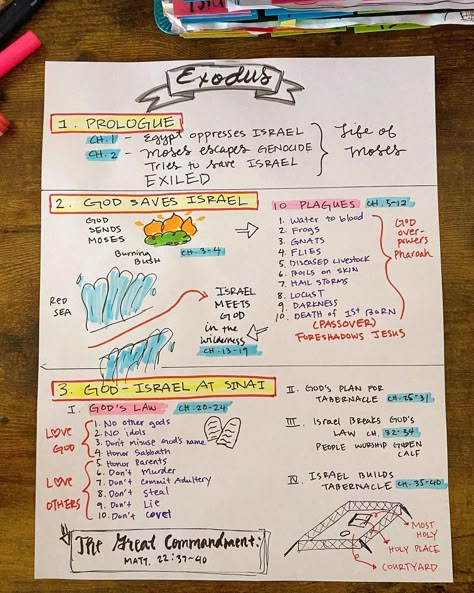 Exodus
1. PROLOGUE
CH. 1 - Egypt oppresses ISRAEL
CH. 2 - Moses escapes GENOCIDE
Tries to save ISRAEL
EXILED
Life of
Moses
2. GOD SAVES ISRAEL
GOD
SENDS
MOSES
Burning
Bush
CH. 3-4
RED
SEA
ISRAEL
MEETS
GOD
in the
wilderness
CH. 13-19
10 PLAGUES CH. 5-12
1. Water to blood
2. FROGS
3. GNATS
4. FLIES
5. DISEASED LIVESTOCK
6. BOILS on SKIN
7. HAIL STORMS
8. LOCUST
9. DARKNESS
10. DEATH OF 1ST BORN
(PASSOVER)
FORESHADOWS JESUS
GOD
over-
powers
Pharoah
3. GOD - ISRAEL AT SINAI
I. GOD'S LAW CH. 20-24
LOVE
GOD
1. No other gods
2. No idols
3. Don't misuse God's name
4. Honor Sabbath
LOVE
OTHERS
5. Honor Parents
6. Don't Murder
7. Don't Commit Adultery
8. Don't Steal
9. Don't Lie
10. Don't Covet
The Great Commandment:
MATT. 22:37-40
II. GOD'S PLAN FOR
TABERNACLE CH. 25-31
III. Israel Breaks God's
LAW CH. 32-34
PEOPLE WORSHIP GOLDEN
CALF
IV. ISRAEL BUILDS
TABERNACLE CH. 35-40
MOST
HOLY
HOLY PLACE
COURTYARD